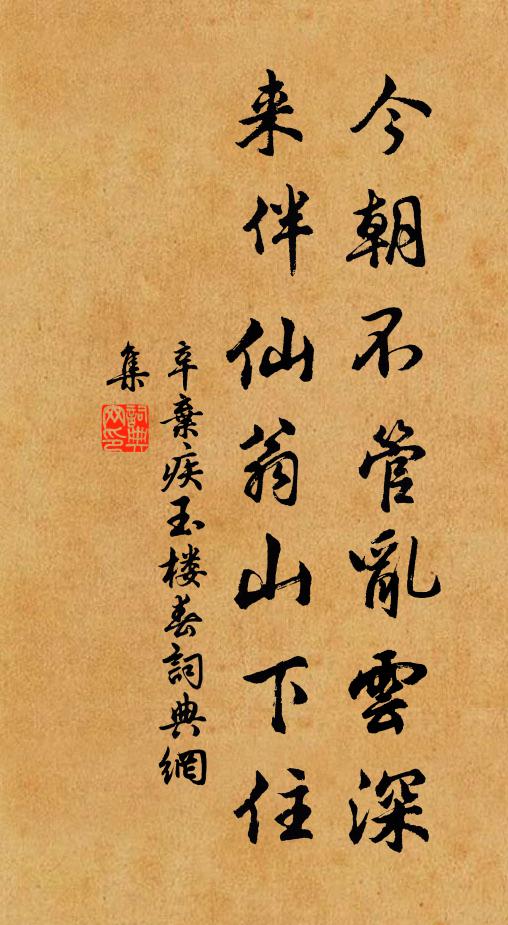 今朝不管亂雲深
来伴仙翁山下住
辛棄疾玉楼春詞典網
集
詞典网印